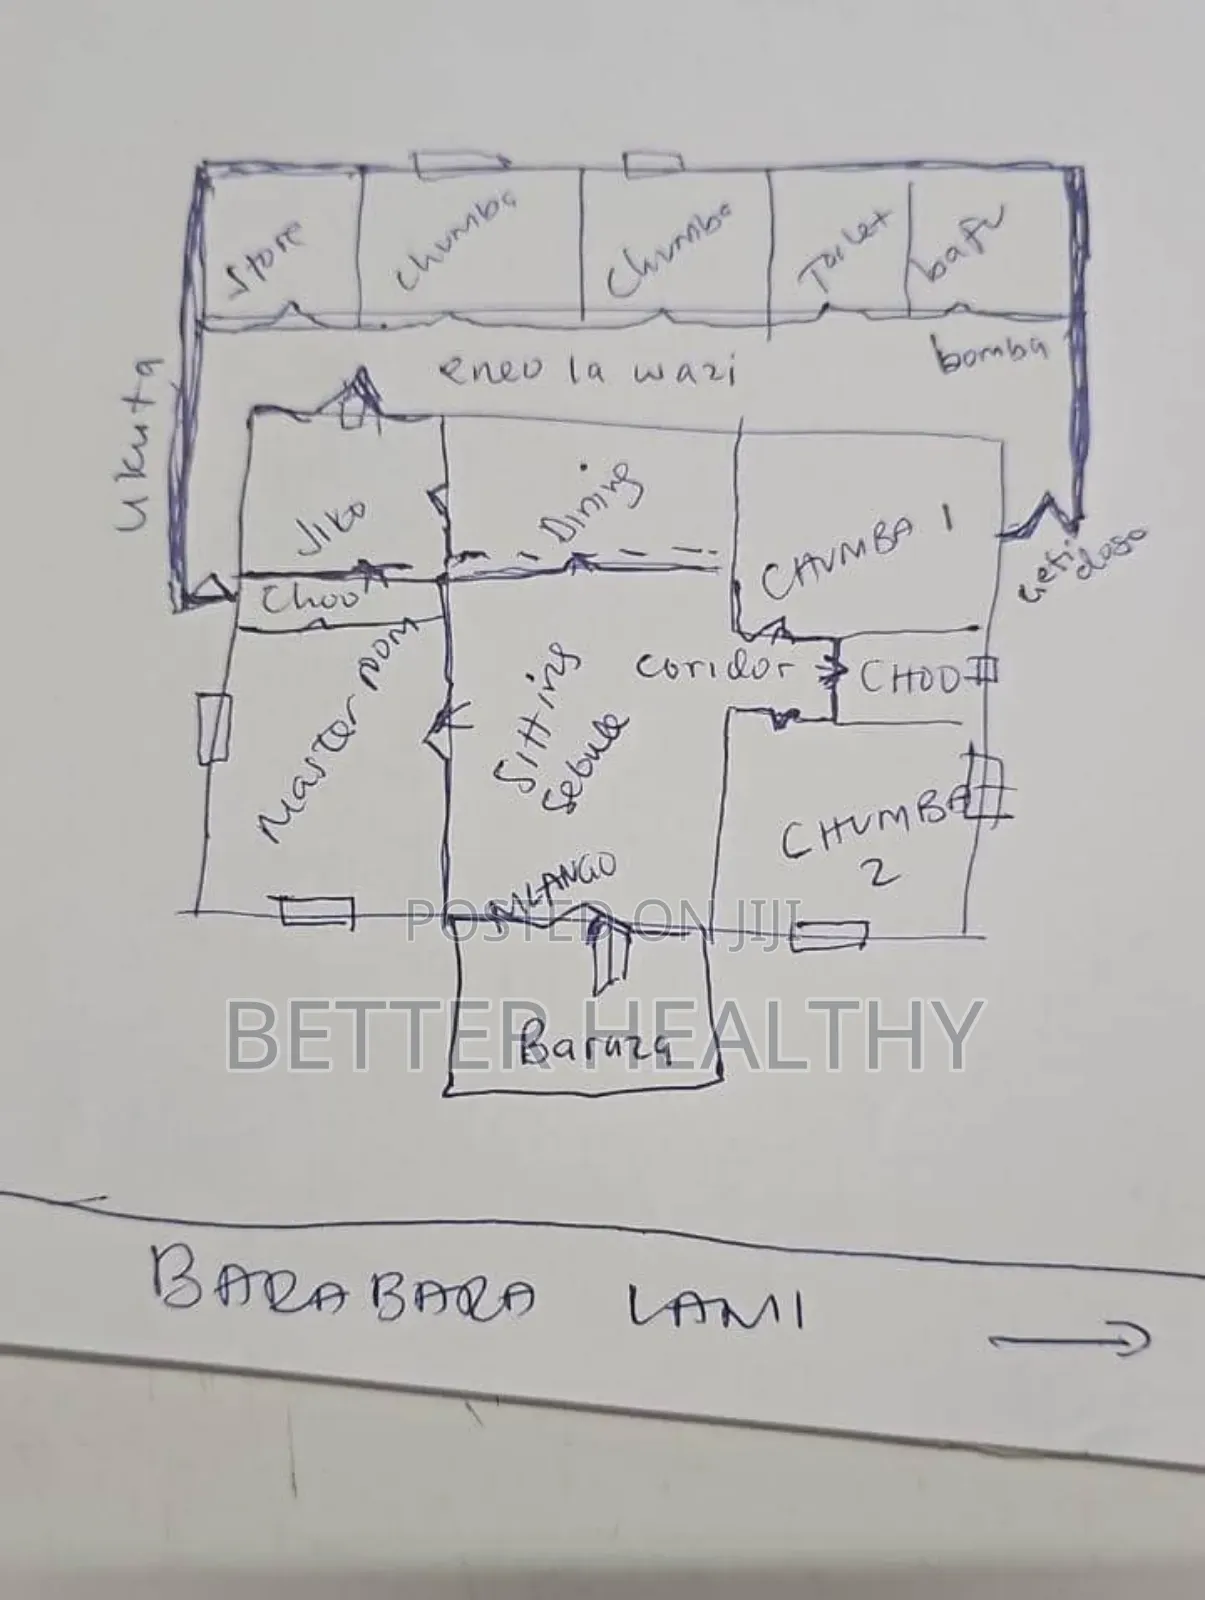 Store
Chumba
Chumba
Toilet
bafu
bomba
eneo la wazi
Ukuta
Jiko
Dining
CHUMBA 1
Geti
dogo
Choo
Master room
Sitting
Sebule
coridor
CHOO
CHUMBA
2
MLANGO
POSTED ON JIJI
BETTER HEALTHY
Baraza
BARABARA LAMI